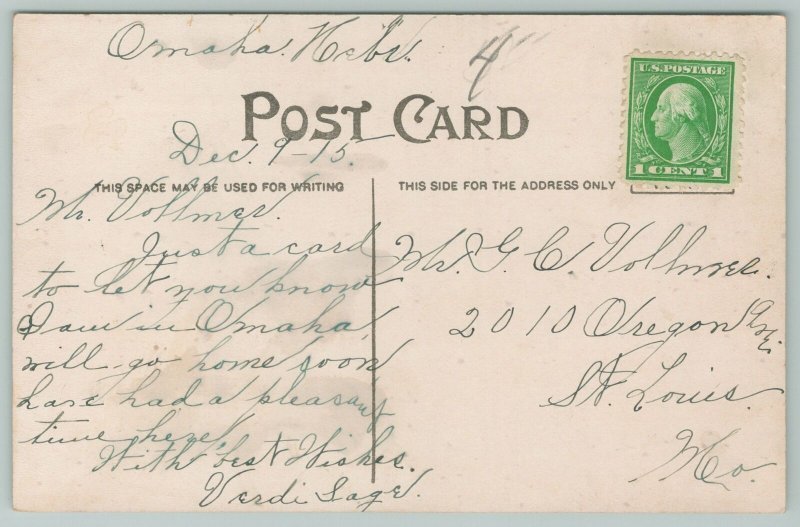 Omaha. Nebr.
4
U.S. POSTAGE
1 CENT 1
POST CARD
Dec. 9-15.
THIS SPACE MAY BE USED FOR WRITING
THIS SIDE FOR THE ADDRESS ONLY
Mr. Vollmer.
Just a card
to let you know
I am in Omaha
will go home soon
have had a pleasant
time here,
With best Wishes.
Verdi Sage.
Mr. G. C. Vollmer.
2010 Oregon Ave.
St. Louis.
Mo.